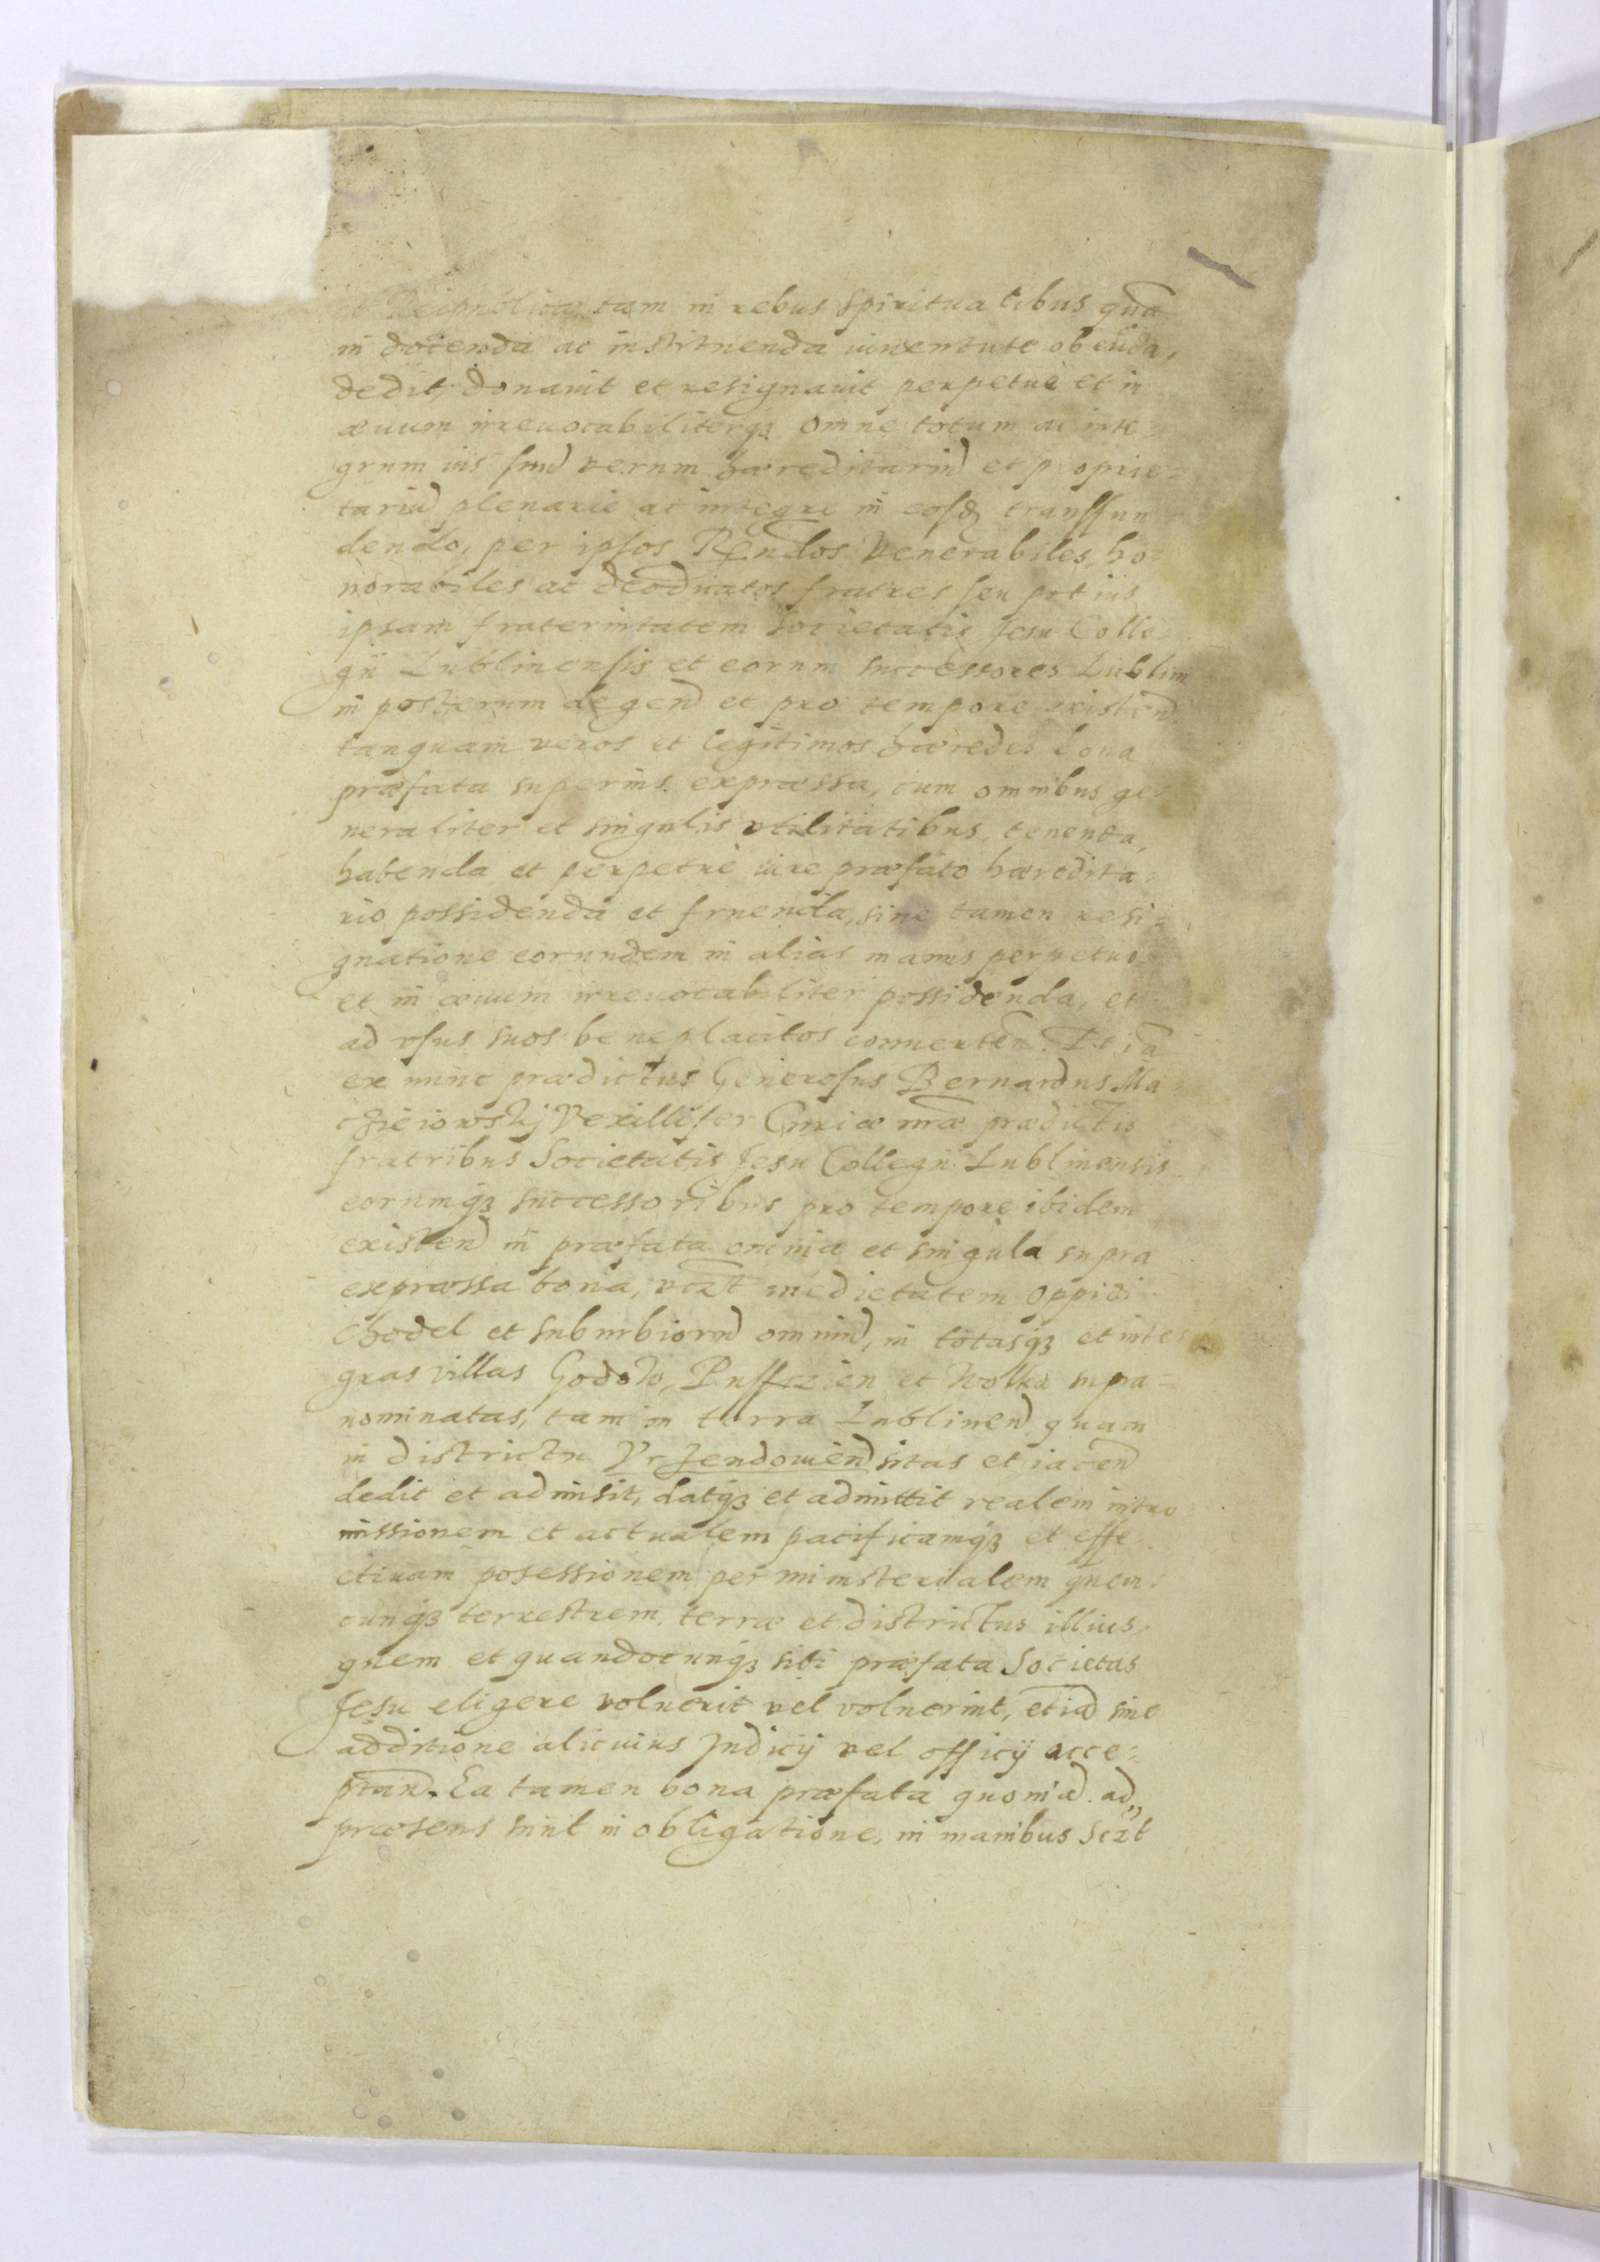 et Reipublicæ tam in rebus spiritualibus quā
in docenda ac instituenda iuventute obeūda,
dedit, donauit et resignauit perpetuè et in
æuum irreuocabiliterq₃ omne totum ac inte-
grum ius suū verum hæreditariū et proprie-
tariū plenarie ac integre in eosd̄ transfun
dendo, per ipsos Rēndos Venerabiles, ho-
norabiles ac deodicatos fratres seu potius
ipsam fraternitatem Societatis Jesu Colle-
gii Lublinensis et eorum successores Lublini
in posterum degend̄ et pro tempore existend̄
tanquam veros et legitimos hæredes bona
præfata superius expræssa, cum omnibus ge-
neraliter et singulis vtilitatibus, tenenda,
habenda et perpetuè iure præfato hæredita-
rio possidenda et fruenda, sine tamen resi-
gnatione eorundem in alias manus perpetuo
et in æuum irreuocabiliter possidenda, et
ad vsus suos beneplacitos conuerten̄. Et iā
ex nunc prædictus Generosus Bernardus Ma-
czieiowskj Vexillifer Curiæ nr̄æ prædictis
fratribus Societatis Jesu Collegii Lublinensis
eorumq₃ successoribus pro tempore ibidem
existend̄ in præfata omnia et singula supra
expræssa bona, vcz̄t medietatem oppidi
Chodel et suburbiorū omniū, in totasq₃ et inte-
gras villas Godow, Pusscziew et Wolka supra-
nominatas, tam in terra Lublinen̄ quam
in districtu Vrzendowien̄ sitas et iacen̄
dedit et admisit, datq₃ et admittit realem intro
missionem et actualem pacificamq₃ et effe-
ctiuam posessionem per ministerialem quem-
cunq₃ terrestrem terræ et districtus illius,
quem et quandocunq₃ sibi præfata Societas
Jesu eligere voluerit vel voluerint, etiā sine
additione alicuius Judicij vel officij acce-
ptan̄. Ea tamen bona præfata quoniā ad„
præsens sunt in obligatione, in manibus scz̄t